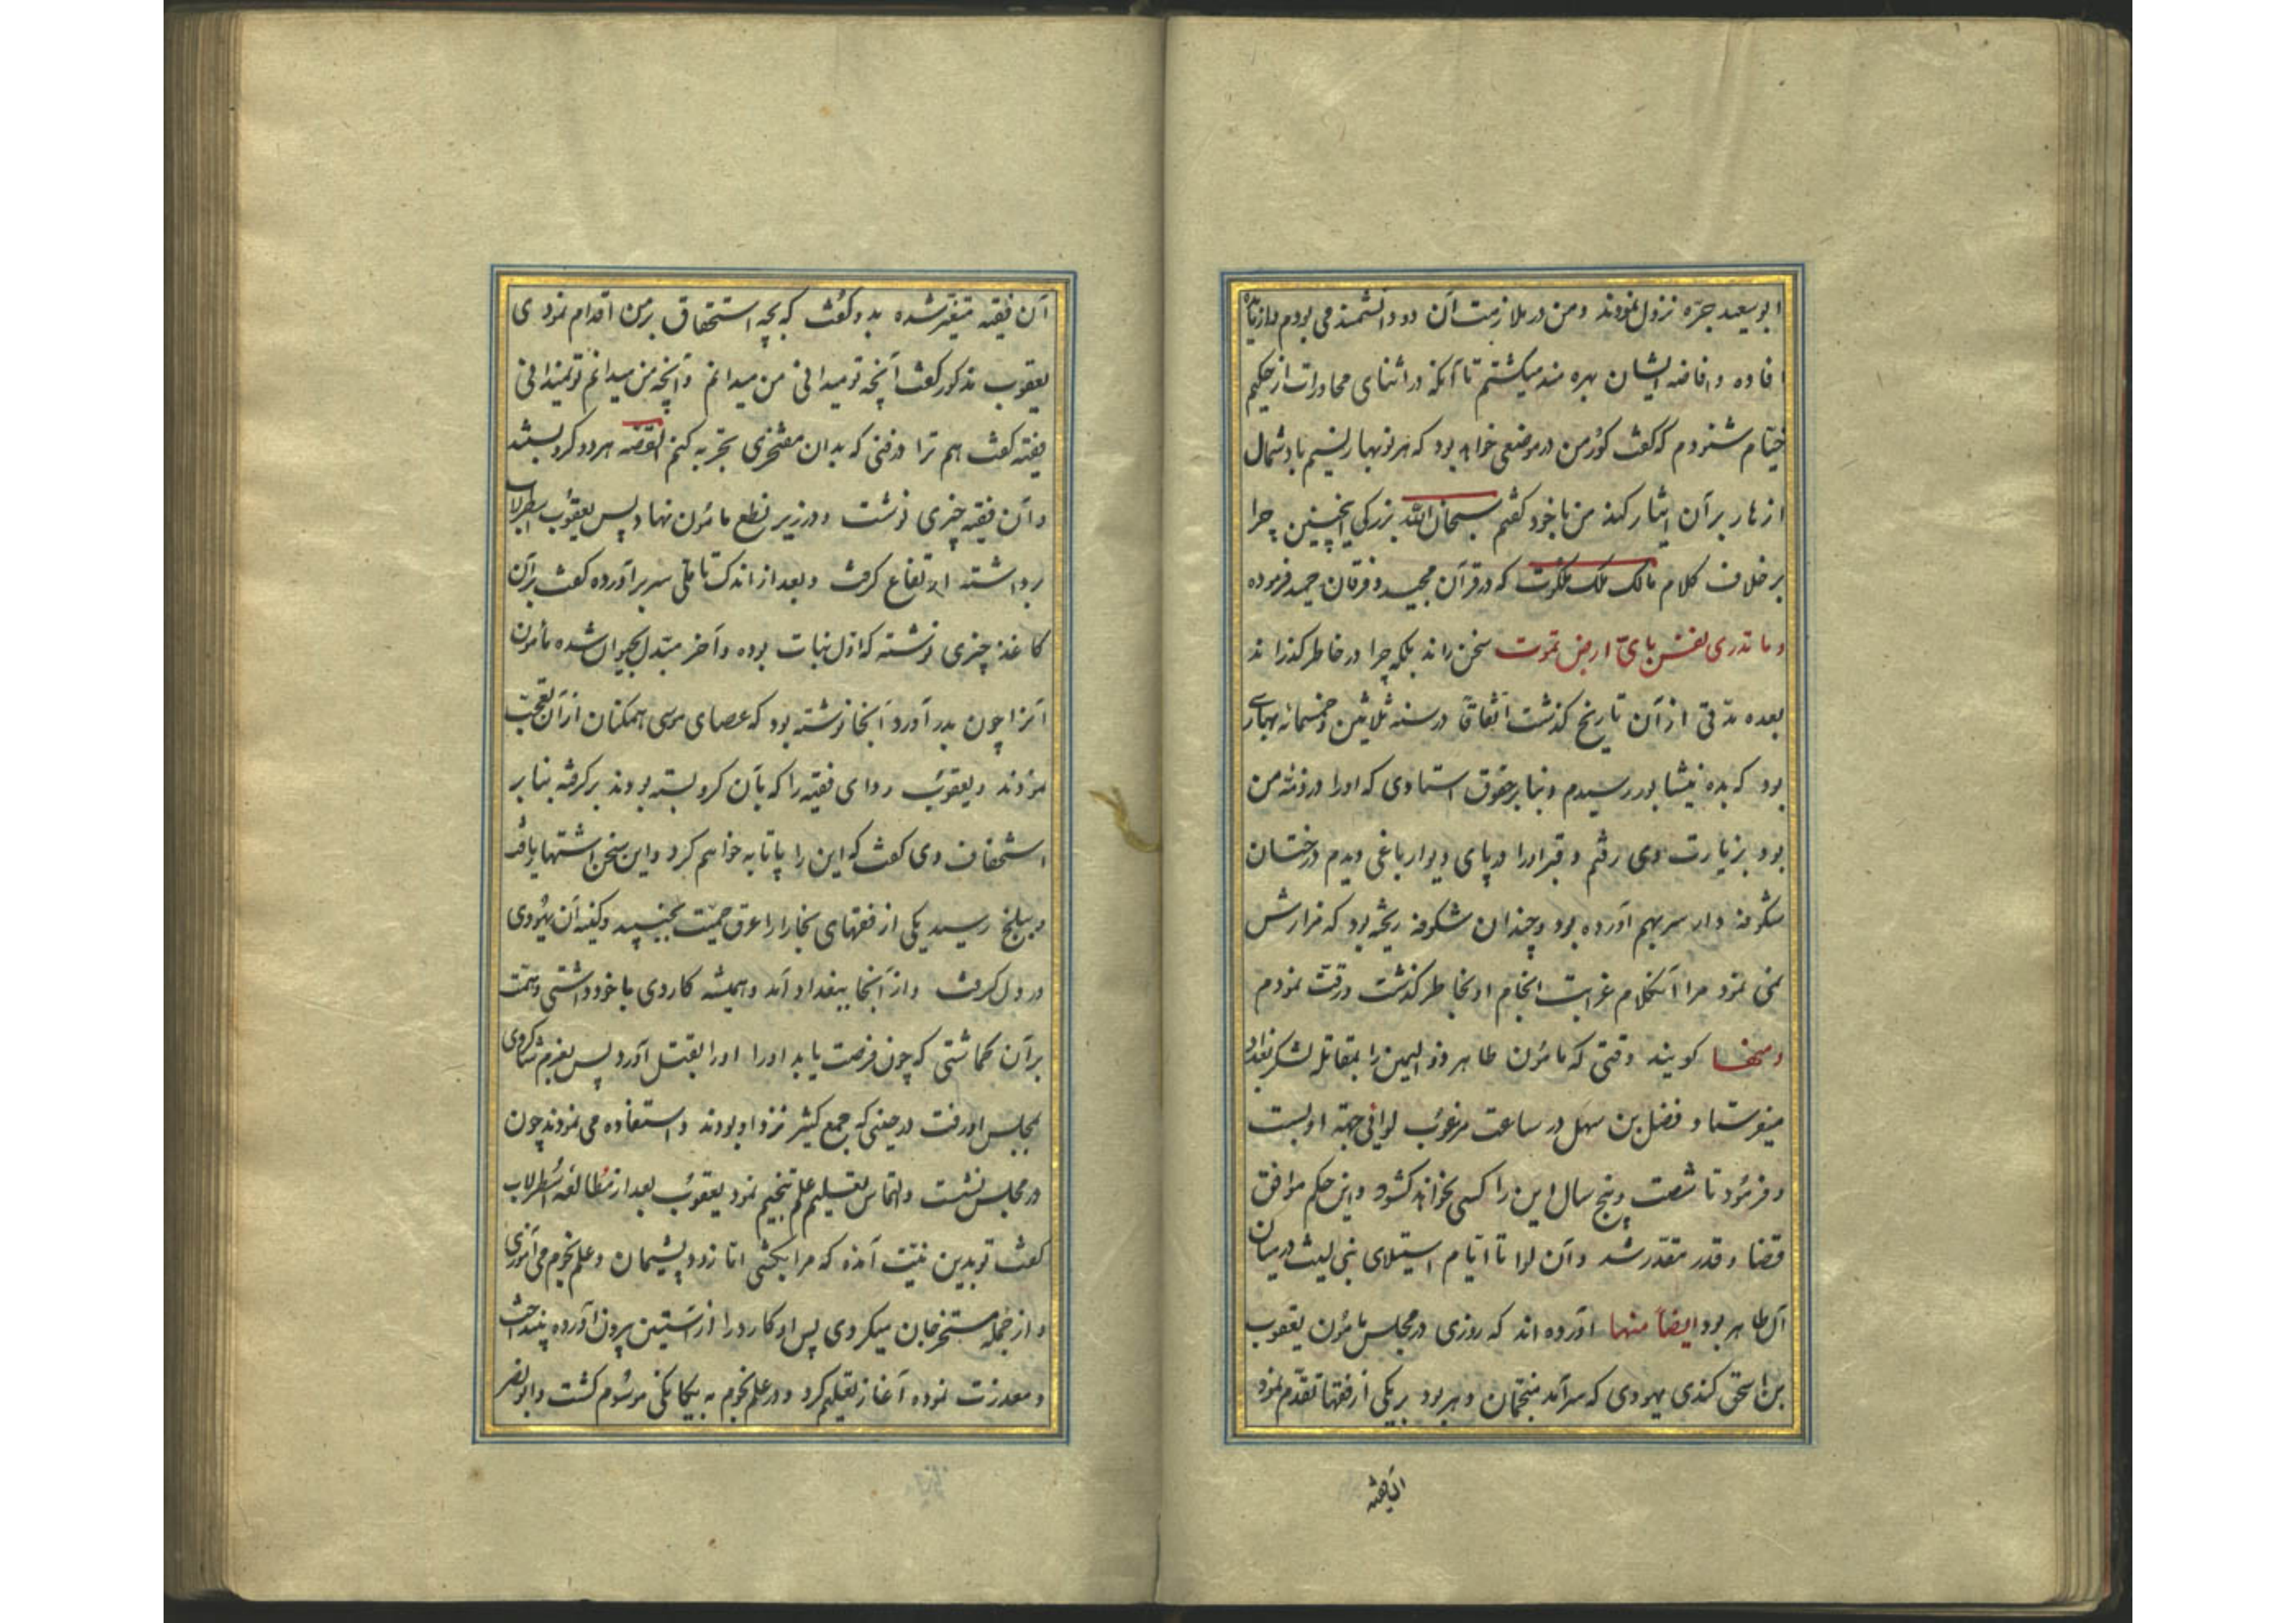 ابوسعید جره نزول نمودند و من در ملازمت آن دو دانشمند می بودم و از
افاده و افاضه ایشان بهره مند میکشتم تا آنکه در اثنای محاورات از حکیم
خیام شنودم که کفت کور من در موضعی خواهد بود که هر نوبهار نسیم باد شمال
ازهار بر آن ایثار کند من با خود کفتم سبحان الله بزرکی اینچنین چرا
بر خلاف کلام مالک ملک ملکوت که در قرآن مجید و فرقان حمید فرموده
و ما تدری نفس بای ارض تموت سخن راند بلکه چرا در خاطر کذراند
بعده مدتی از آن تاریخ کذشت اتفاقا در سنه ثلاثین و خمسمائه بهاری
بود که بده نیشابور رسیدم و بنا بر حقوق استادی که او را در ذمه من
بود بزیارت وی رفتم و قبر او را در پای دیوار باغی دیدم درختان
شکوفه دار سر بهم آورده بود و چندان شکوفه ریخته بود که مزارش
نمی نمود مرا آنکلام غرابت انجام او بخاطر کذشت و رقت نمودم
و منها کویند وقتی که مامون طاهر ذو الیمین را بمقاتله لشکر بغداد
میفرستاد فضل بن سهل در ساعت مرغوب لوائی جهة او بست
و فرمود تا شصت و پنج سال این را کسی نخواند کشود و این حکم موافق
قضا و قدر مقدر شد و آن لوا تا ایام استیلای بنی لیث در میان
آل طاهر بود ایضا منها آورده اند که روزی در مجلس مامون یعقوب
بن اسحق کندی یهودی که سرآمد منجمان دهر بود بر یکی از فقها تقدم نمود
آن فقیه
آن فقیه متغیر شده بدو کفت که بچه استحقاق بر من اقدام نمودی
یعقوب مذکور کفت آنچه تو میدانی من میدانم و آنچه من میدانم تو نمیدانی
فقیه کفت هم ترا در فنی که بدان مفتخری تجربه کنم القصه هر دو کرو بستند
و آن فقیه چیزی نوشت و در زیر نطع مامون نهاد پس یعقوب اسطرلاب
برداشته ارتفاع کرفت و بعد از اندک تاملی سر برآورده کفت بر آن
کاغذ چیزی نوشته که اول نبات بوده و آخر مبدل بحیوان شده مامون
آنرا چون بدر آورد آنجا نوشته بود که عصای موسی همکنان از آن تعجب
نمودند و یعقوب ردای فقیه را که بآن کرو بسته بودند برکرفته بنا بر
استخفاف وی کفت که این را پاتابه خواهم کرد و این سخن اشتهار یافت
و ببلخ رسید یکی از فقهای بخارا را عرق حمیت بجنبید و کینه آن یهودی
در دل کرفت و از آنجا ببغداد آمد و همیشه کاردی با خود داشتی و همت
بر آن کماشتی که چون فرصت یابد او را بقتل آورد پس بعزم شاکردی
بمجلس او رفت در حینی که جمع کثیر نزد او بودند و استفاده می نمودند چون
در مجلس نشست و التماس تعلیم علم تنجیم نمود یعقوب بعد از مطالعه اسطرلاب
کفت تو بدین نیت آمده که مرا بکشی اما زود پشیمان و علم نجوم می آموزی
و از جمله مستخرجان میکردی پس او کارد را از آستین بیرون آورده بینداخت
و معذرت نموده آغاز تعلیم کرد و در علم نجوم به یکانکی موسوم کشت و ابو نصر